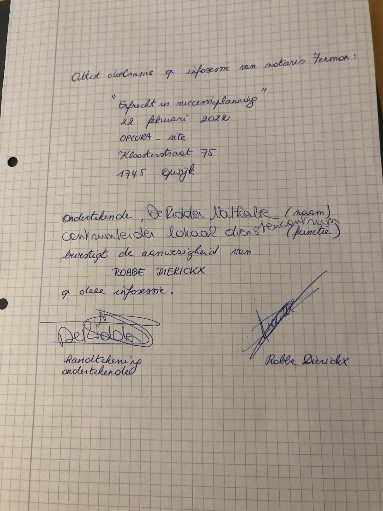 Attest deelname op infosessie van notaris Fermon:
"Erfrecht en successieplanning"
22 februari 2022
OPCURA - site
Kloosterstraat 75
1745 Opwijk
Ondertekende, De Ridder Nathalie (naam)
centrumleider lokaal dienstencentrum (functie)
bevestigt de aanwezigheid van
ROBBE DIERICKX
op deze infosessie.
De Ridder
Handtekening
ondertekende
Robbe Dierickx